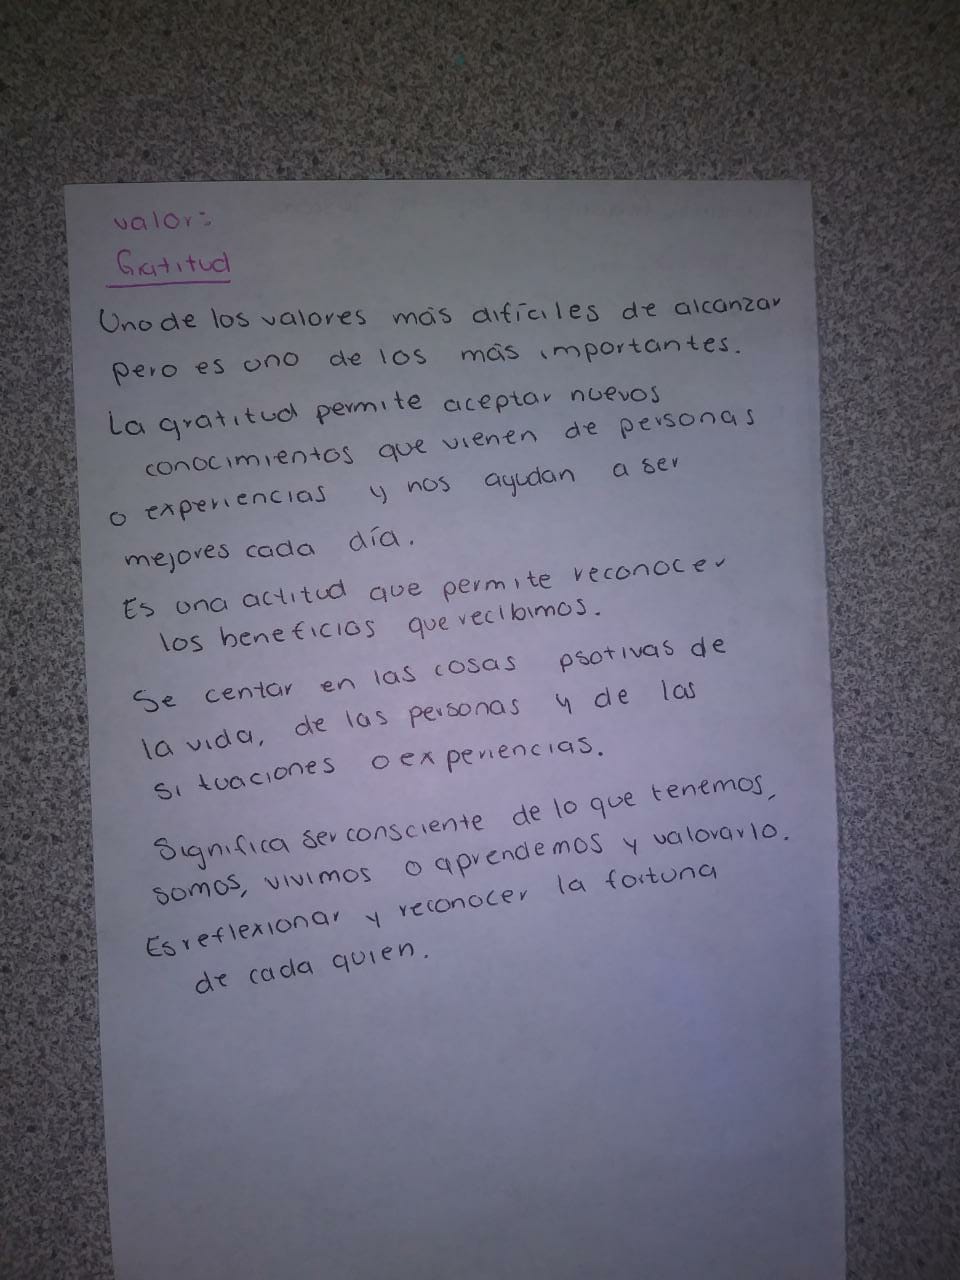 valor:
Gratitud
Uno de los valores más difíciles de alcanzar
pero es uno de los más importantes.
La gratitud permite aceptar nuevos
conocimientos que vienen de personas
o experiencias y nos ayudan a ser
mejores cada día.
Es una actitud que permite reconocer
los beneficios que recibimos.
Se centar en las cosas psotivas de
la vida, de las personas y de las
situaciones o experiencias.
Significa ser consciente de lo que tenemos,
somos, vivimos o aprendemos y valorarlo.
Es reflexionar y reconocer la fortuna
de cada quien.